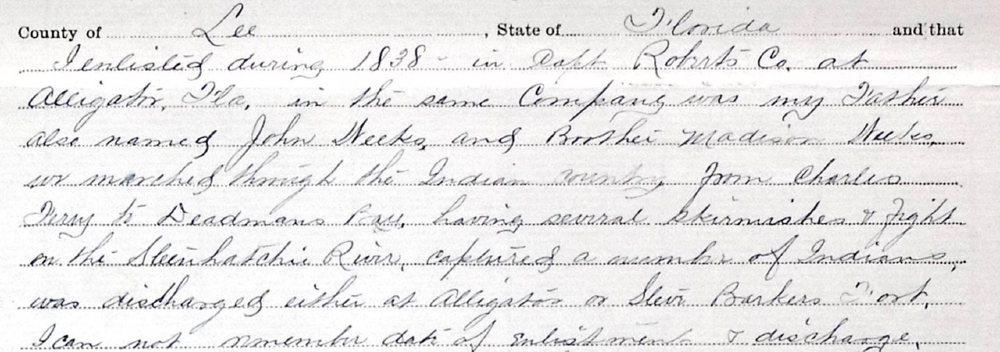 County of Lee, State of Florida and that
I enlisted during 1838 - in Capt Roberts Co. at
Alligator, Fla, in the same Company was my Father
also named John Weeks, and Boother Madison Weeks,
we marched through the Indian country from Charles
Ferry to Deadmans Bay, having several skirmishes & fight
on the Steinhatchie River, captured a number of Indians,
was discharged either at Alligator or Barkers Fort,
I can not remember date of enlistment & discharge,